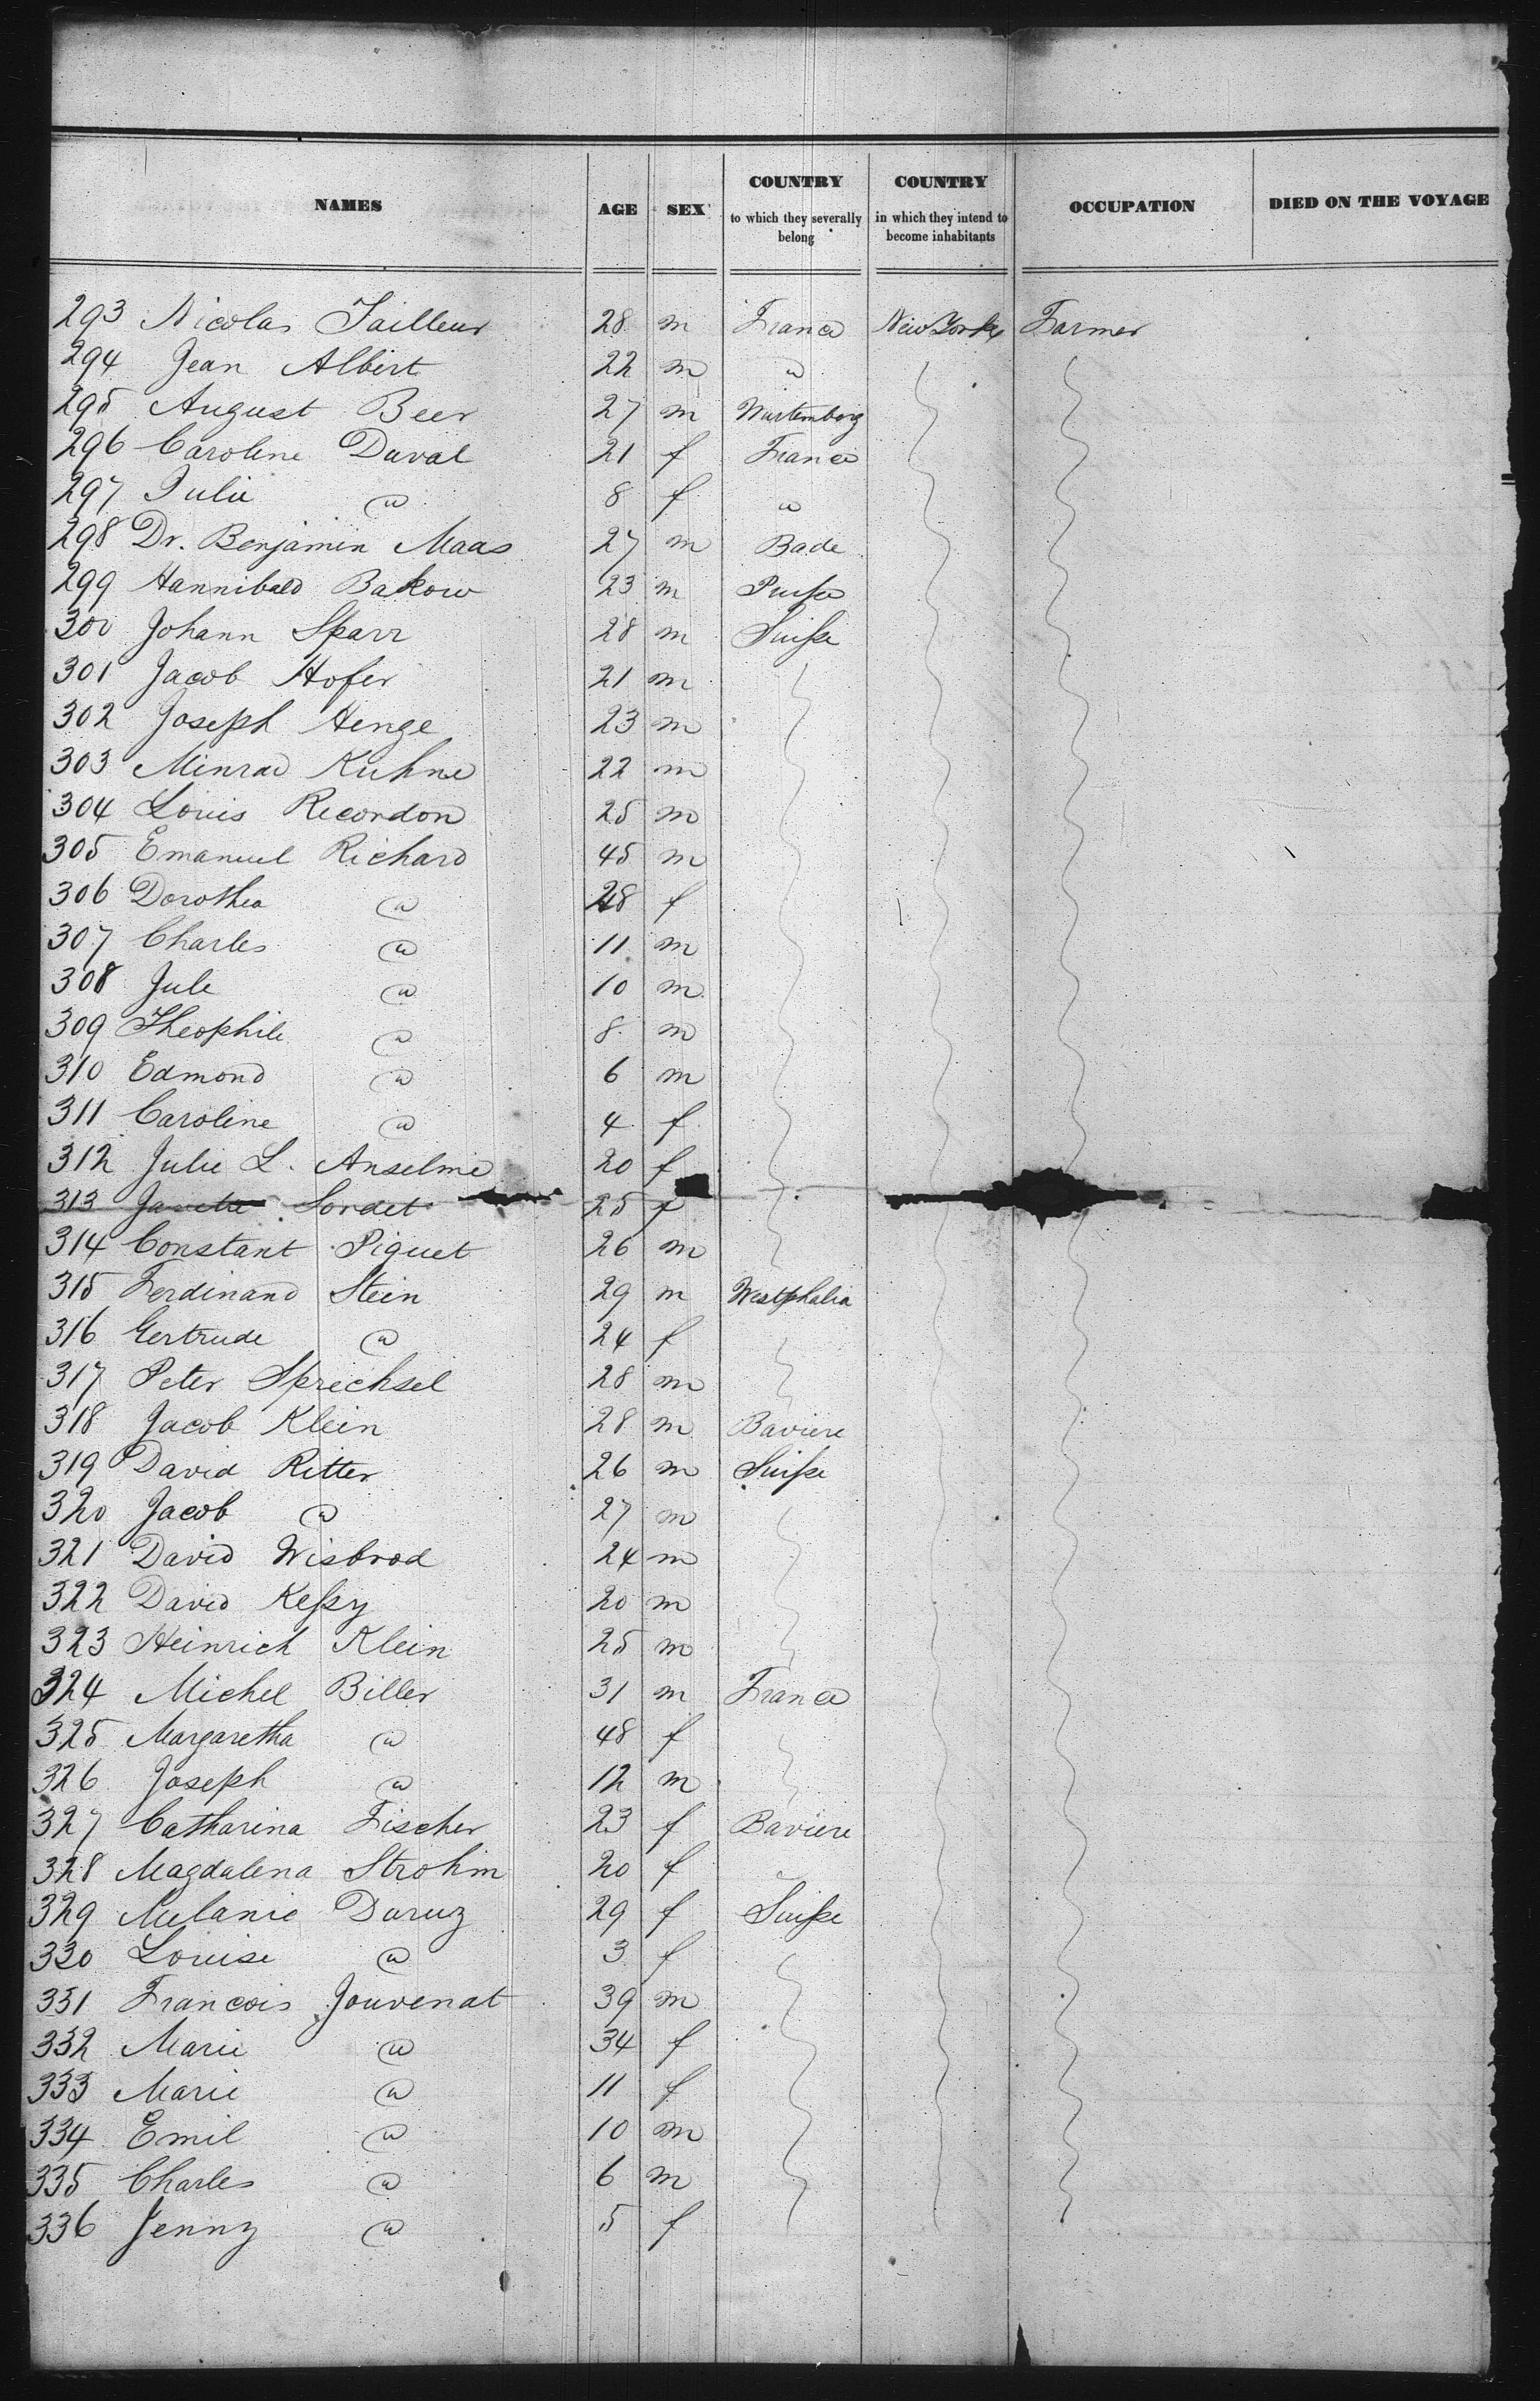 NAMES AGE SEX COUNTRY to which they severally belong COUNTRY in which they intend to become inhabitants OCCUPATION DIED ON THE VOYAGE
293 Nicolas Tailleur 28 m France New York Farmer
294 Jean Albert 22 m "
295 August Beer 27 m Wurtemberg
296 Caroline Duval 21 f France
297 Julie " 8 f "
298 Dr. Benjamin Maas 27 m Bade
299 Hannibald Bakow 23 m
300 Johann Sparr 28 m Suiße
301 Jacob Hofer 21 m
302 Joseph Henge 23 m
303 Minrad Kuhne 22 m
304 Louis Recordon 25 m
305 Emanuel Richard 45 m
306 Dorothea " 48 f
307 Charles " 11 m
308 Jule " 10 m
309 Theophile " 8 m
310 Edmond " 6 m
311 Caroline " 4 f
312 Julie L. Anselme 20 f
313 Janette Sordet 25 f
314 Constant Piguet 26 m
315 Ferdinand Stein 29 m Westphalia
316 Gertrude " 24 f
317 Peter Sprechsel 28 m
318 Jacob Klein 28 m Baviere
319 David Ritter 26 m Suiße
320 Jacob " 27 m
321 David Wisbrod 24 m
322 David Keßry 20 m
323 Heinrich Klein 25 m
324 Michel Biller 31 m France
325 Margaretha " 48 f
326 Joseph " 12 m
327 Catharina Fischer 23 f Baviere
328 Magdalena Strohm 20 f "
329 Melanie Daruz 29 f Suiße
330 Louise " 3 f
331 Francois Jouvenat 39 m
332 Marie " 34 f
333 Marie " 11 f
334 Emil " 10 m
335 Charles " 6 m
336 Jenny " 5 f